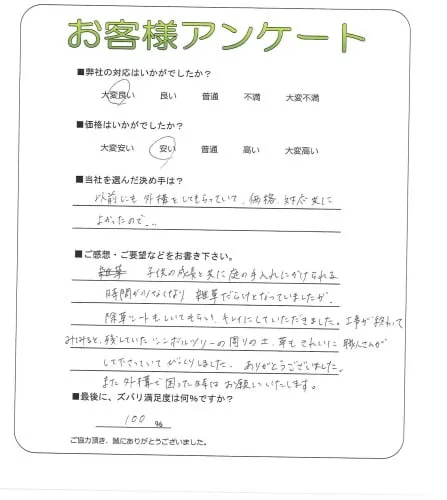 お客様アンケート
■弊社の対応はいかがでしたか?
大変良い 良い 普通 不満 大変不満
■価格はいかがでしたか?
大変安い 安い 普通 高い 大変高い
■当社を選んだ決め手は?
以前にも外構をしてもらっていて、価格、対応共に
よかったので...
■ご感想・ご要望などをお書き下さい。
雑草 子供の成長と共に庭の手入れにかけられる
時間が少なくなり 雑草だらけとなっていましたが、
除草シートもしいてもらい、キレイにしていただきました。工事が終わって
みてみると、残していたシンボルツリーの周りの土、草もきれいに職人さんが
して下さっていて びっくりしました。ありがとうございました。
また外構で困った時は お願いいたします。
■最後に、ズバリ満足度は何%ですか?
100 %
ご協力頂き、誠にありがとうございました。